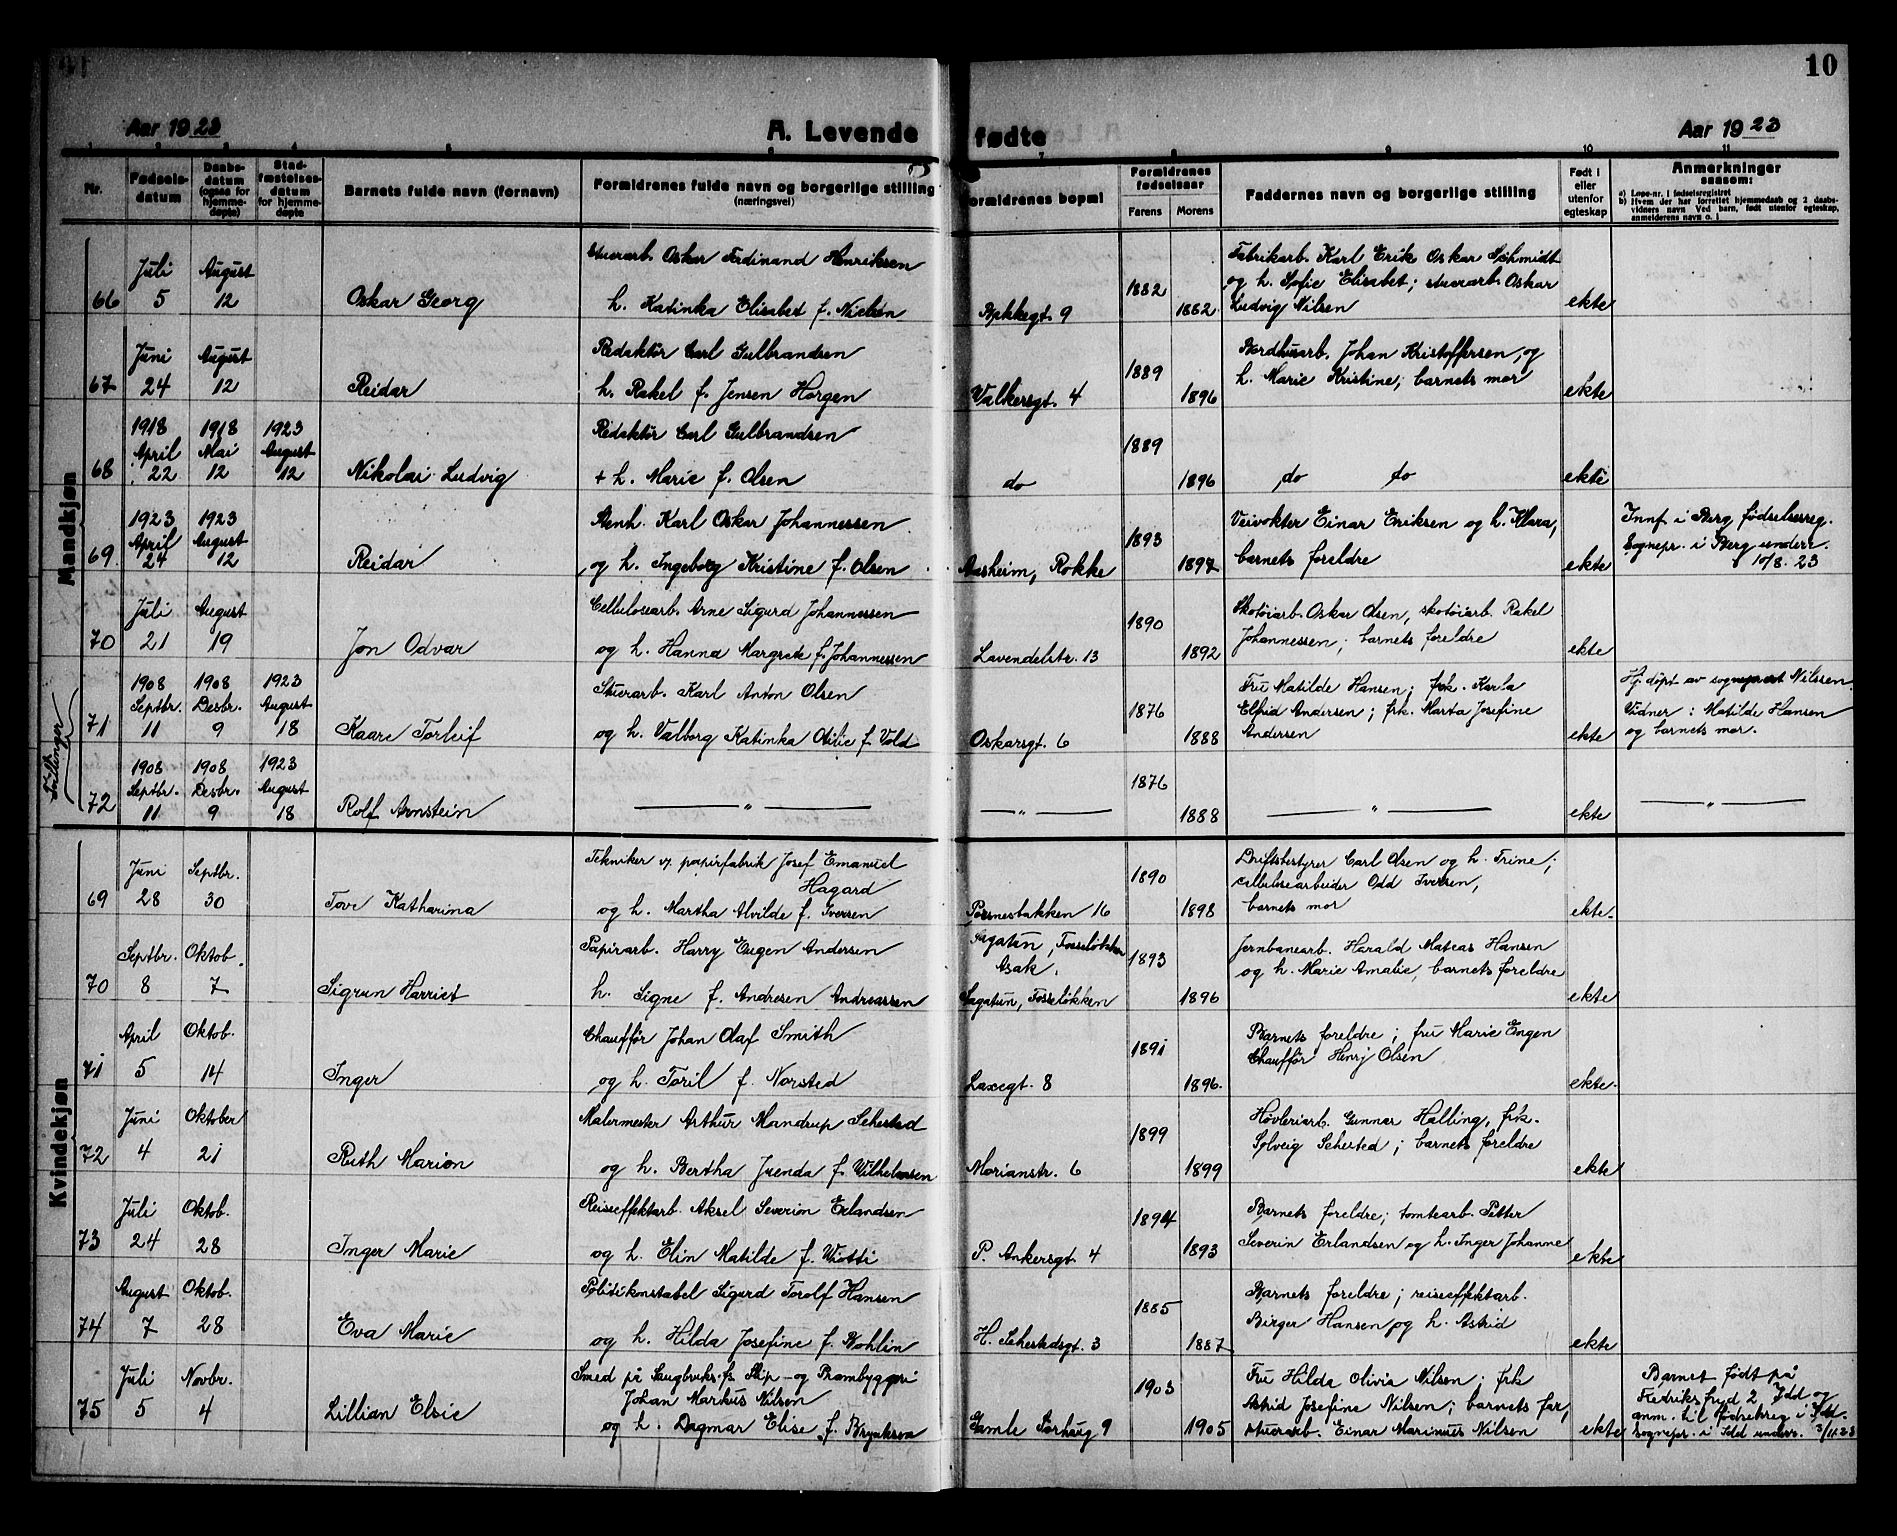 10
Aar 1923
A. Levende fødte
Aar 1923
Nr.
Fødsels-datum
Daabs-datum (ogsaa for hjemme-døpte)
Stad-fæstelses-datum for hjemme-døpte
Barnets fulde navn (fornavn)
Formldrenes fulde navn og borgerlige stilling (næringsvei)
Formldrenes bopæl
Formldrenes fødselsaar
Farens
Morens
Faddernes navn og borgerlige stilling
Født i eller utenfor egteskap
Anmerkninger saasom:
a) Løpe-nr. i fødselsregistret
b) Hvem der har forrettet hjemmedaab og 2 daabs-vidners navn Ved barn, født utenfor egteskap, anmelderens navn o. l
7
8
9
10
11
Mandkjøn
66
Juli 5
August 12
Oskar Georg
Stuerarb. Oskar Ferdinand Henriksen
h. Katinka Elisabet f. Nielsen
Bakkegt. 9
1882
1882
Fabrikarb. Karl Erik Oskar Schmidt
og h. Sofie Elisabet; stuerarb. Oskar
Ludvig Nilsen
ekte
67
Juni 24
August 12
Reidar
Redaktør Carl Gulbrandsen
h. Rakel f. Jensen Horgen
Valkersgt. 4
1889
1896
Bordhusarb. Johan Kristoffersen, og
h. Marie Kristine; barnets mor
ekte
68
1918 April 22
1918 Mai 12
1923 August 12
Nikolai Ludvig
Redaktør Carl Gulbrandsen
+ h. Marie f. Olsen
do
1889
1896
do do
ekte
69
1923 April 24
1923 August 12
Reidar
Stenh. Karl Oskar Johannessen
og h. Ingeborg Kristine f. Olsen
Aasheim, Rokke
1893
1897
Veivokter Einar Eriksen og h. Klara,
barnets foreldre
ekte
Innf. i Berg fødselsreg.
Sognepr. i Berg underr.
10/8. 23
70
Juli 21
August 19
Jon Odvar
Cellulosearb. Arne Sigurd Johannessen
og h. Hanna Margrete f. Johannessen
Lavendelstr. 13
1890
1892
Skotøiarb. Oskar Olsen, skotøiarb. Rakel
Johannessen; barnets foreldre
ekte
Tvillinger
71
1908 Septbr. 11
1908 Desbr. 9
1923 August 18
Kaare Torleif
Stuerarb. Karl Anton Olsen
og h. Valborg Katinka Otilie f. Vold
Oskarsgt. 6
1876
1888
Fru Matilde Hansen; frk. Karla
Elfrid Andersen; frk. Marta Josefine
Andersen
ekte
Hj. døpt av sogneprest Nilssen.
Vidner: Matilde Hansen
og barnets mor.
72
1908 Septbr. 11
1908 Desbr. 9
1923 August 18
Rolf Arnstein
— " —
— " —
1876
1888
— " —
ekte
— " —
Kvindekjøn
69
Juni 28
Septbr. 30
Tove Katharina
Tekniker v. papirfabrik Josef Emanuel
Hagard
og h. Martha Alvilde f. Iversen
Porsnesbakken 16
1890
1898
Driftsbestyrer Carl Olsen og h. Trine;
cellulosearbeider Odd Iversen,
barnets mor
ekte
70
Septbr. 8
Oktob. 7
Sigrun Harriet
Papirarb. Harry Eugen Andersen
h. Signe f. Andresen Andreassen
Sagatun, Fosseløkken
Asak.
Sagatun, Fosseløkken
1893
1896
Jernbanearb. Harald Mateas Hansen
og h. Marie Amalie, barnets foreldre
ekte
71
April 5
Oktob. 14
Inger
Chauffør Johan Olaf Smith
og h. Toril f. Norsted
Laxegt. 8
1891
1896.
Barnets foreldre; fru Marie Engen
Chauffør Henry Olsen
ekte
72
Juni 4
Oktober 21
Ruth Marion
Malermester Arthur Mandrup Sehested
og h. Bertha Juenda f. Wilhelmsen
Marianstr. 6
1899
1899
Høvleriarb. Gunnar Halling, frk.
Solveig Sehested; barnets foreldre
ekte
73
Juli 24
Oktob. 28
Inger Marie
Reiseeffektarb. Aksel Severin Erlandsen
og h. Elin Matilde f. Wiotti
P. Ankersgt. 4
1894
1893
Barnets foreldre; tomtearb. Petter
Severin Erlandsen og h. Inger Johanne
ekte
74
August 7
Oktob. 28
Eva Marie
Politikonstabel Sigurd Torolf Hansen
og h. Hilda Josefine f. Bohlin
H. Sehestedsgt. 3
1885
1887
Barnets foreldre; reiseeffektarb.
Birger Hansen og h. Astrid
ekte
75
Juli 5
Novbr. 4
Lillian Elsie
Smed på Saugbruks.fs Skip- og Prambyggeri
Johan Markus Nilsen
og h. Dagmar Elise f. Brynksen
Gamle Sørhaug 9
1903
1905
Fru Hilda Olivia Nilsen; frk
Astrid Josefine Nilsen; barnets far,
stuerarb. Einar Marinius Nilsen
ekte
Barnet født på
Fredriksfryd 2, Idd og
anm. til fødselsreg i Idd.
Sognepr. i Idd underr. 3/11.23